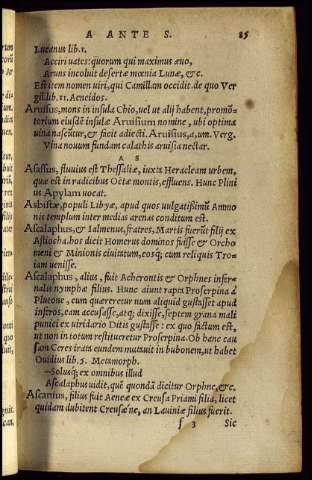 A ANTE S. 85
Lucanus lib.1.
Acciri uates: quorum qui maximus æuo,
Aruns incoluit desertæ mœnia Lunæ, &c.
Est item nomen uiri, qui Camillam occidit. de quo Ver
gil. lib. 11. Aeneidos.
Aruisius, mons in insula Chio, uel ut alij habent, promõ-
torium eiusdẽ insulæ Aruisium nomine, ubi optima
uina nascũtur, & facit adiecti. Aruisius, a, um. Verg.
Vina nouum fundam calathis aruisia nectar.
A S
Asassus, fluuius est Thessaliæ, iuxta Heracleam urbem,
quæ est in radicibus Octæ montis, effluens. Hunc Plini
us Apylam uocat.
Asbistæ, populi Libyæ, apud quos uulgatißimũ Ammo
nis templum inter medias arenas conditum est.
Ascalaphus, & Ialmenus, fratres, Martis fuerũt filij ex
Astiocha. hos dicit Homerus dominos fuisse & Orcho
meni & Minionis ciuitatum, eosq; cum reliquis Tro-
iam uenisse.
Ascalaphus, alius, fuit Acherontis & Orphnes infer-
nalis nymphæ filius. Hunc aiunt rapta Proserpina à
Plutone, cum quæreretur num aliquid gustasset apud
inferos, eam accusasse, atq; dixisse, septem grana mali
punici ex uiridario Ditis gustasse: ex quo factum est,
ut non in totum restitueretur Proserpina. Ob hanc cau
sam Ceres irata eundem mutauit in bubonem, ut habet
Ouidius lib. 5. Metamorph.
—Solusq; ex omnibus illud
Ascalaphus uidit, quẽ quondã dicitur Orphne, &c.
Ascanius, filius fuit Aeneæ ex Creusa Priami filia, licet
quidam dubitent Creusæ ne, an Lauiniæ filius fuerit.
f 3 Sic